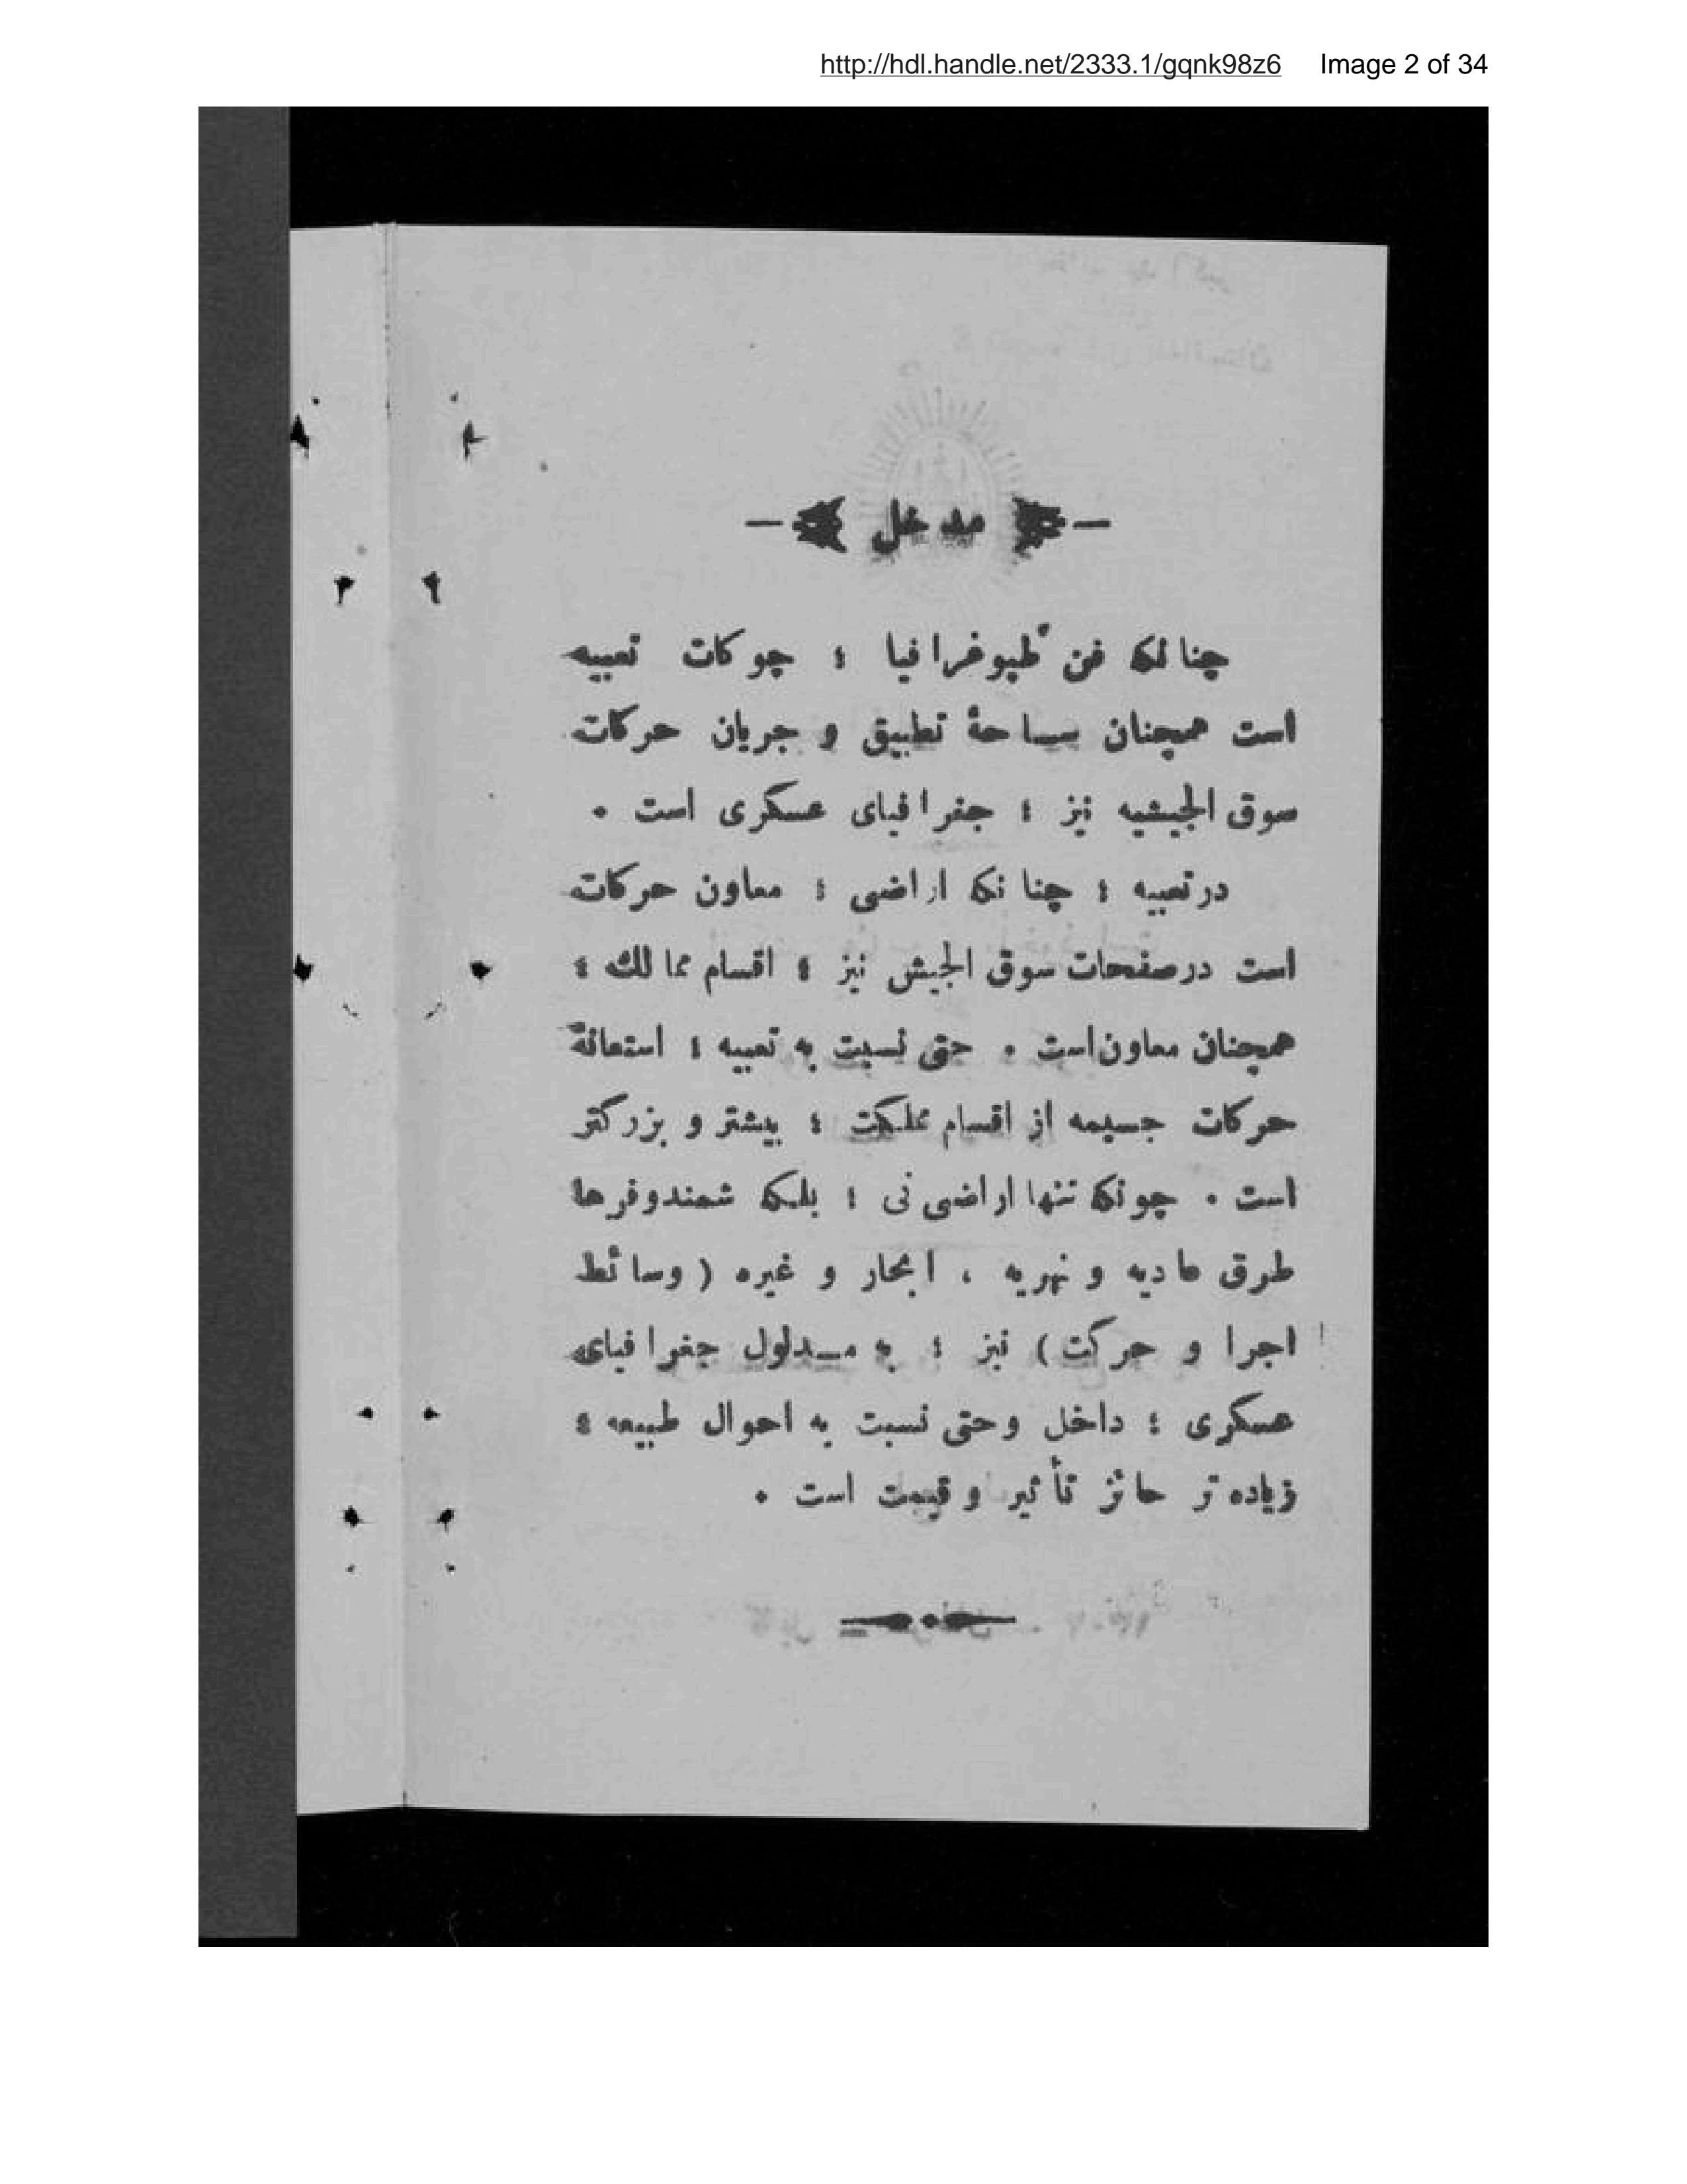 http://hdl.handle.net/2333.1/gqnk98z6 Image 2 of 34
مدخل
چنانکه فن طپوغرافیا ؛ چوکات تعبیه
است همچنان ساحهٔ تطبیق و جریان حرکات
سوق الجیشیه نیز ؛ جغرافیای عسکری است .
در تعبیه ؛ چنانکه اراضی ؛ معاون حرکات
است در صفحات سوق الجیش نیز ؛ اقسام ممالك ؛
همچنان معاون است . حتی نسبت به تعبیه ؛ استعانهٔ
حرکات جسیمه از اقسام مملکت ؛ بیشتر و بزرکتر
است . چونکه تنها اراضی نی ؛ بلکه شمندوفرها
طرق عادیه و نهریه ، ابحار و غیره ( وسائط
اجرا و حرکت ) نیز ؛ به مدلول جغرافیای
عسکری ؛ داخل و حتی نسبت به احوال طبیعه ؛
زیاده تر حائز تأثیر و قیمت است .